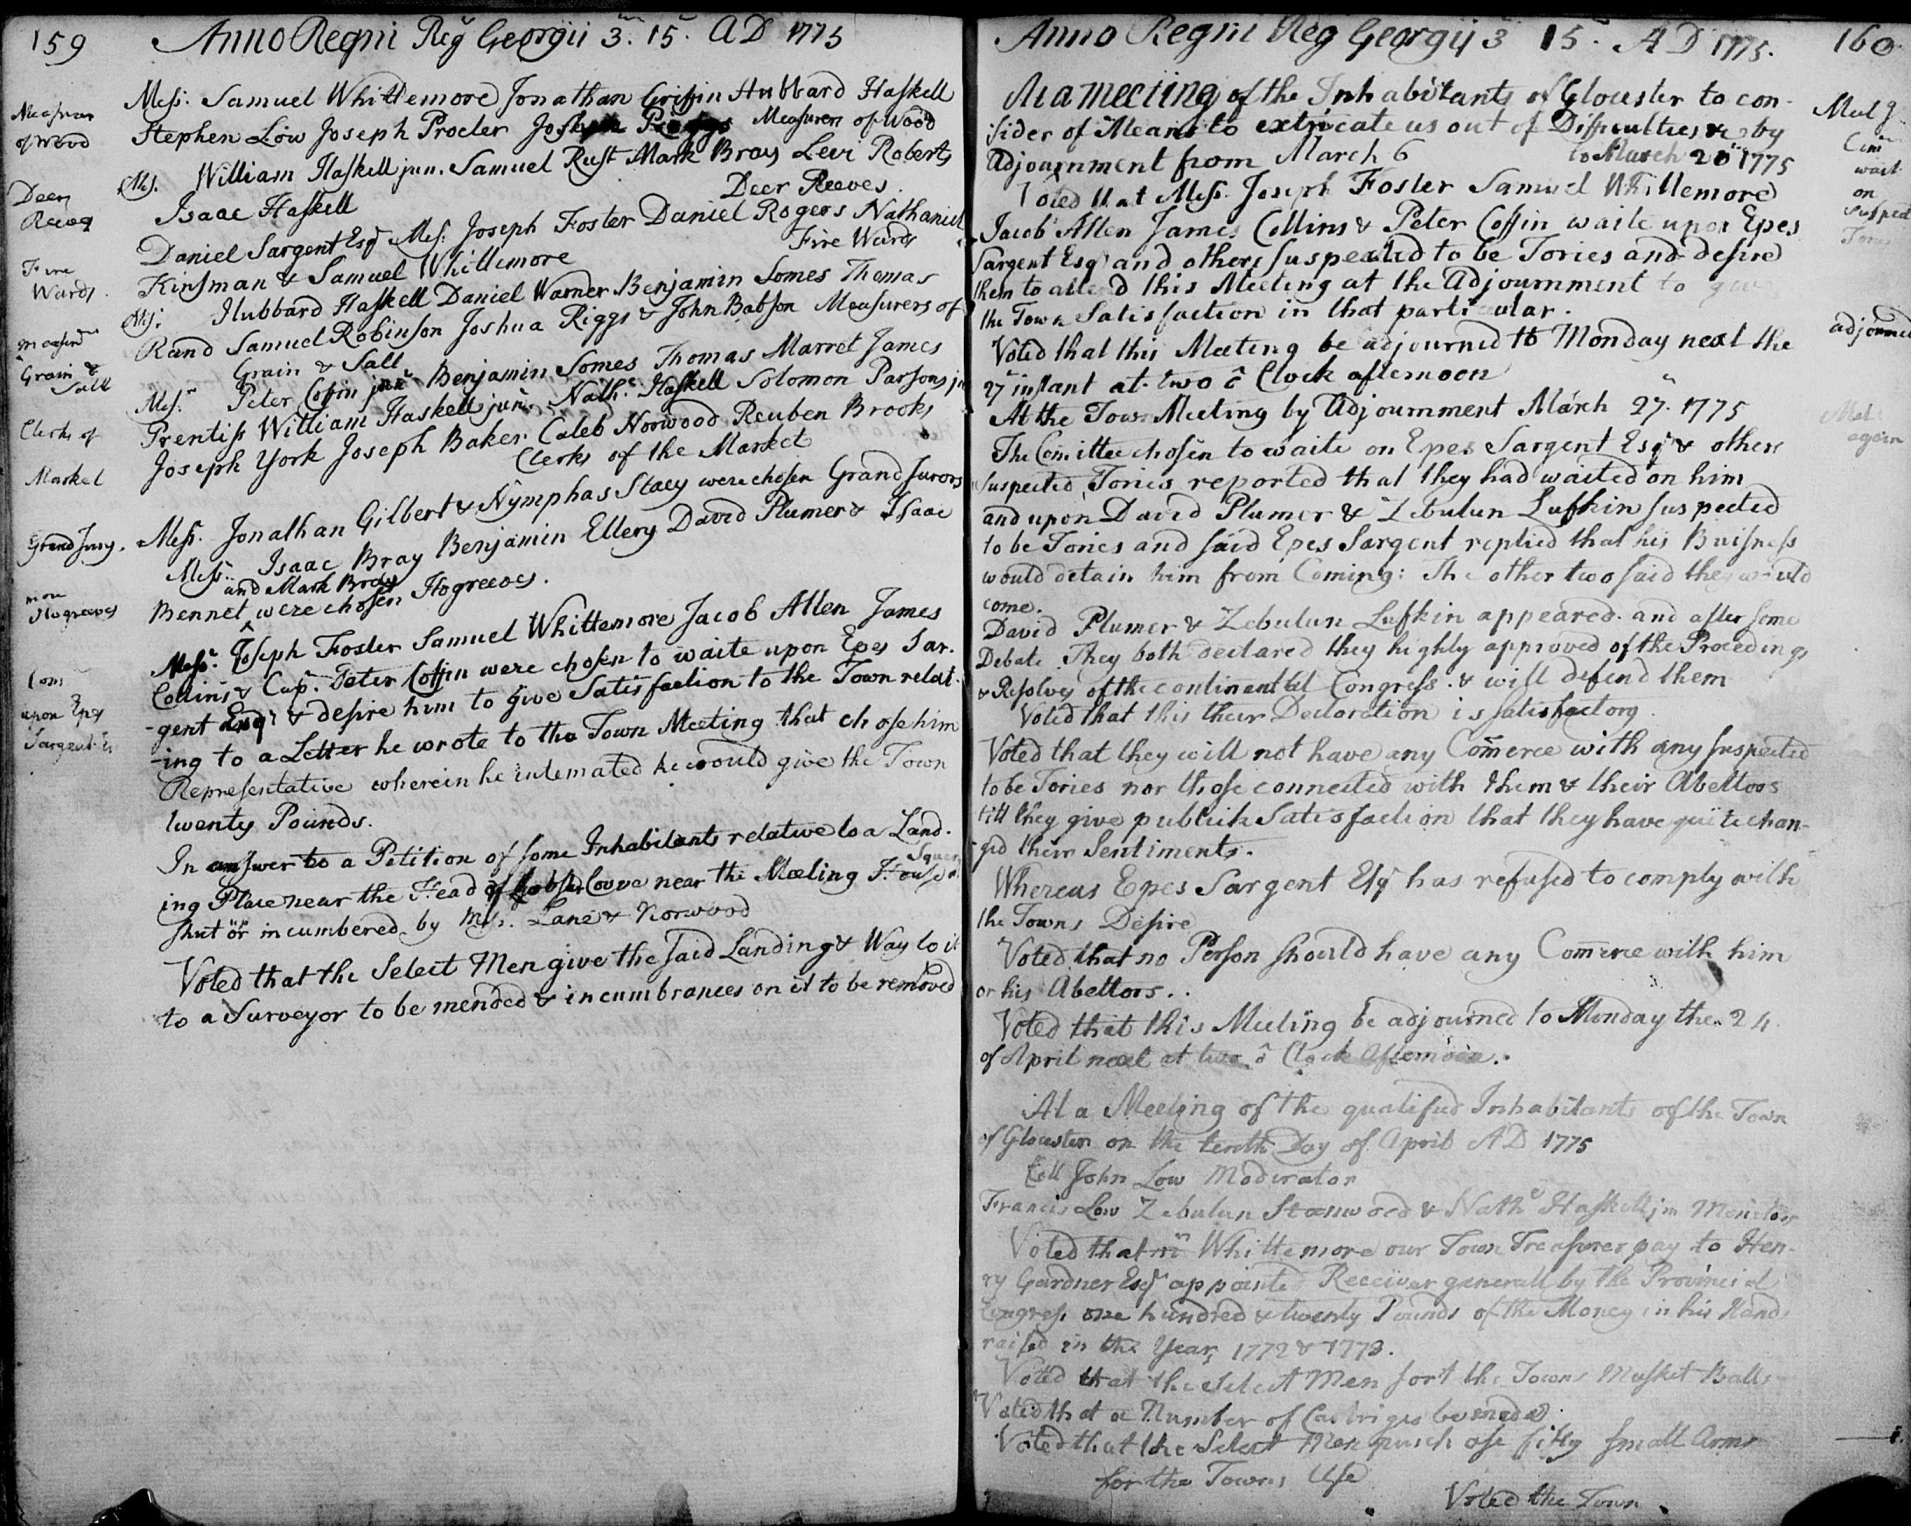 159 Anno Regni Reg Georgii 3. 15. AD 1775
Measurers
of Wood
Mess. Samuel Whittemore Jonathan Griffin Hubbard Haskell
Stephen Low Joseph Procter Measurers of Wood
Deer
Reeves
Mes. William Haskell jun. Samuel Rust Mark Bray Levi Roberts
Isaac Haskell Deer Reeves.
Fire
Wards.
Daniel Sargent Esqr Mes: Joseph Foster Daniel Rogers Nathaniel
Kinsman & Samuel Whittemore Fire Wards
measurs
Grain &
Salt
Mes: Hubbard Haskell Daniel Warner Benjamin Somes Thomas
Rand Samuel Robinson Joshua Riggs & John Babson Measurers of
Grain & Salt
Clerks of
Market
Mes: Peter Coffin junr Benjamin Somes Thomas Marret James
Prentiss William Haskell jun. Nath. Haskell Solomon Parsons jn
Joseph York Joseph Baker Caleb Norwood Reuben Brooks
Clerks of the Market
Grand Jury.
Mess. Jonathan Gilbert & Nymphas Stacy were chosen Grand Jurors
more
Hogreeves
Mess. Isaac Bray Benjamin Ellery David Plumer & Isaac
and Mark Bray
Bennet were chosen Hogreeves.
Com
upon Epes
Sargent
Messr. Joseph Foster Samuel Whittemore Jacob Allen James
Collins & Cap. Peter Coffin were chosen to waite upon Epes Sar-
-gent Esqr & desire him to give Satisfaction to the Town relat-
-ing to a Letter he wrote to the Town Meeting that chose him
Representative wherein he intemated he would give the Town
twenty Pounds.
In answer to a Petition of some Inhabitants relative to a Land-
ing Place near the Head of Lobster Coove near the Meeting House
shut or incumbered by Mes. Lane & Norwood
Voted that the Select Men give the said Landing & Way to it
to a Surveyor to be mended & incumbrances on it to be removed
Anno Regni Reg Georgij 3 15. AD 1775. 160
At a meeting of the Inhabitants of Glouester to con-
sider of Means to extricate us out of Difficulties & by
Adjournment from March 6 to March 20 1775
Com
wait
on
suspect
Tories
Voted that Mess. Joseph Foster Samuel Whittemore
Jacob Allen James Collins & Peter Coffin waite upon Epes
Sargent Esqr and others suspected to be Tories and desire
them to attend this Meeting at the Adjournment to give
the Town Satisfaction in that particular.
adjourned
Voted that this Meeting be adjourned to Monday next the
27 instant at two o Clock afternoon
At the Town Meeting by Adjournment March 27. 1775
again
The Comittee chosen to waite on Epes Sargent Esqr & others
suspected Tories reported that they had waited on him
and upon David Plumer & Zebulun Lufkin suspected
to be Tories and said Epes Sargent replied that his Buisness
would detain him from Coming: The other two said they would
come.
David Plumer & Zebulun Lufkin appeared. and after some
Debate They both declared they highly approved of the Procedings
& Resolves of the continental Congress. & will defend them
Voted that this their Declaration is satisfactory
Voted that they will not have any Comerce with any suspected
to be Tories nor those connected with them & their Abettors
till they give publick Satisfaction that they have quite chan-
-ged their Sentiments.
Whereas Epes Sargent Esqr has refused to comply with
the Towns Desire
Voted that no Person should have any Comerce with him
or his Abettors..
Voted that this Meeting be adjourned to Monday the 24
of April next at two o Clock Afternoon.
At a Meeting of the qualifud Inhabitants of the Town
of Glouester on the tenth Day of April AD 1775
Coll John Low Moderator
Francis Low Zebulun Stanwood & Nath Haskell jn Monitors
Voted that mr Whittemore our Town Treasurer pay to Hen-
ry Gardner Esqr appointed Receiver generall by the Provincial
Congress one hundred & twenty Pounds of the Money in his Hands
raised in the Year 1772 & 1773.
Voted that the Select Men sort the Towns Musket Balls
Voted that a Number of Catriges be made
Voted that the Select Men purchose fifty small Arms
for the Towns Use
Voted the Town